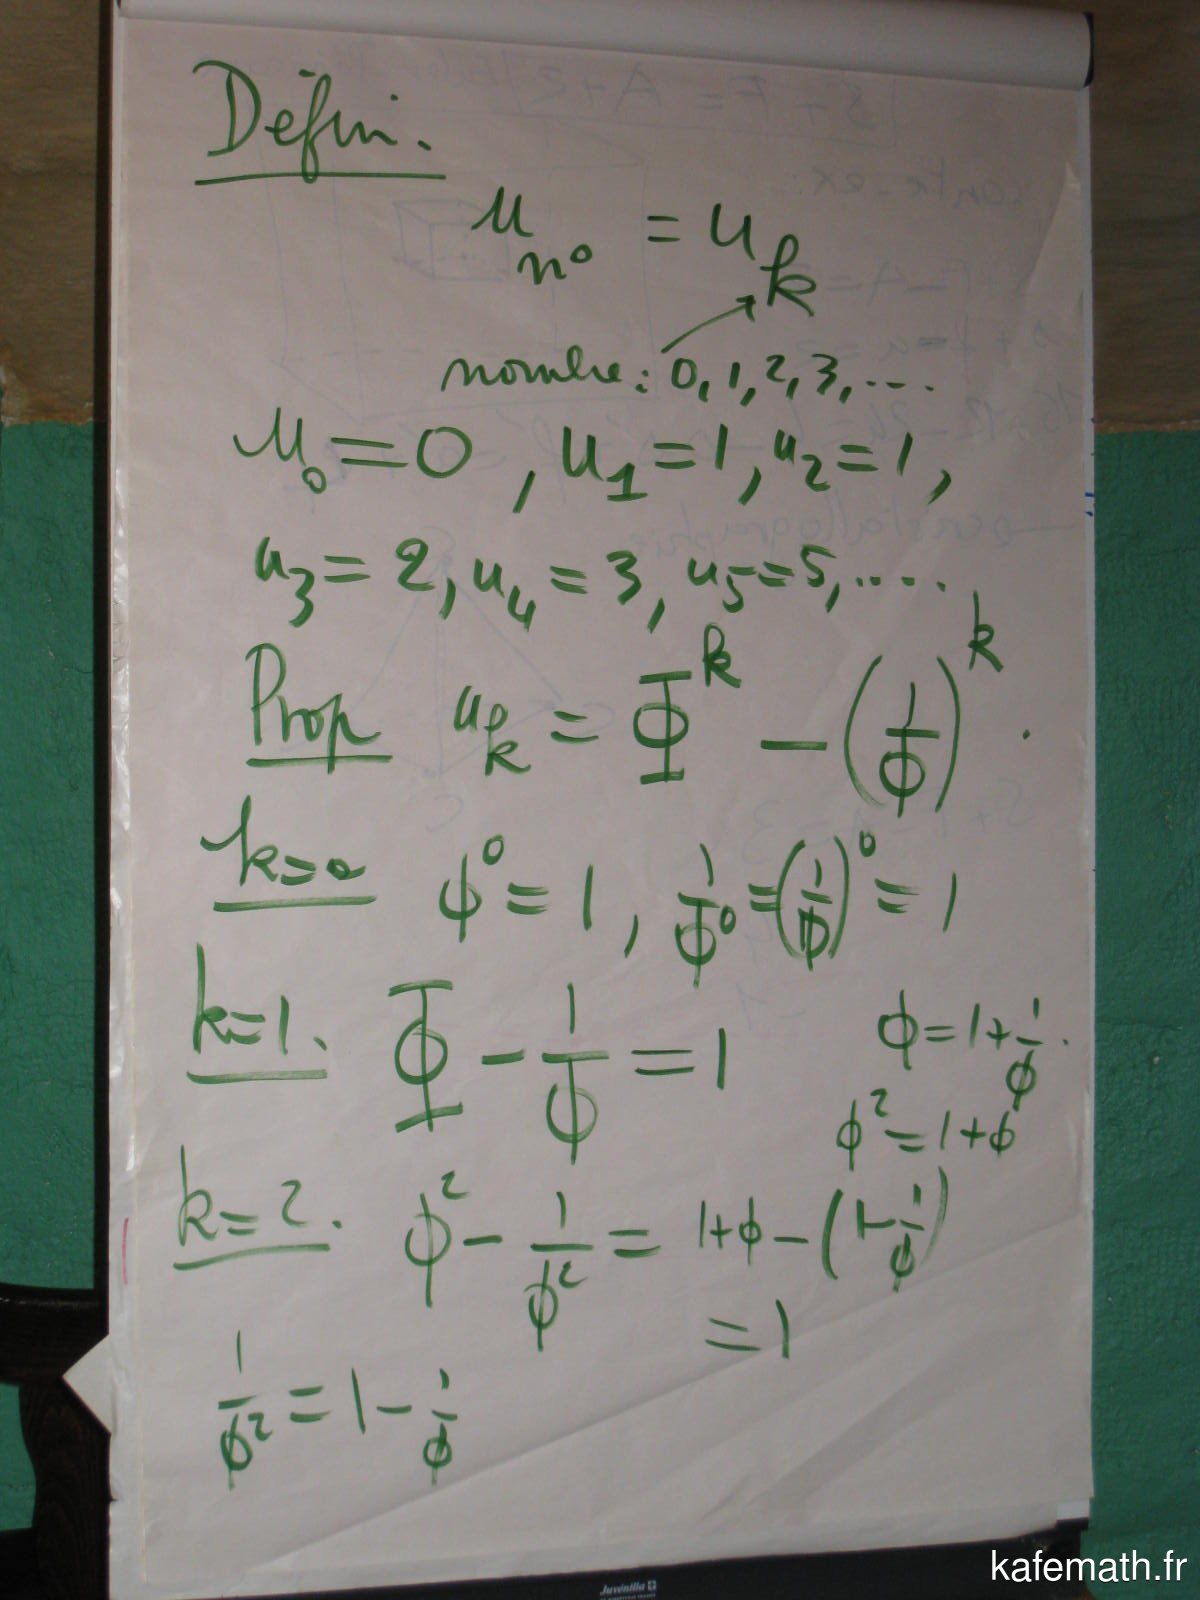 Défin.
u_n° = u_k
nombre: 0, 1, 2, 3, ....
u_0 = 0, u_1 = 1, u_2 = 1,
u_3 = 2, u_4 = 3, u_5 = 5, ....
Prop u_k = Φ^k - (1/Φ)^k.
k=0 ϕ^0 = 1, 1/Φ^0 = (1/Φ)^0 = 1
k=1. Φ - 1/ϕ = 1 ϕ = 1 + 1/ϕ.
ϕ^2 = 1 + ϕ
k=2. ϕ^2 - 1/ϕ^2 = 1+ϕ - (1 - 1/ϕ)
= 1
1/ϕ^2 = 1 - 1/ϕ
Juvénilia
kafemath.fr